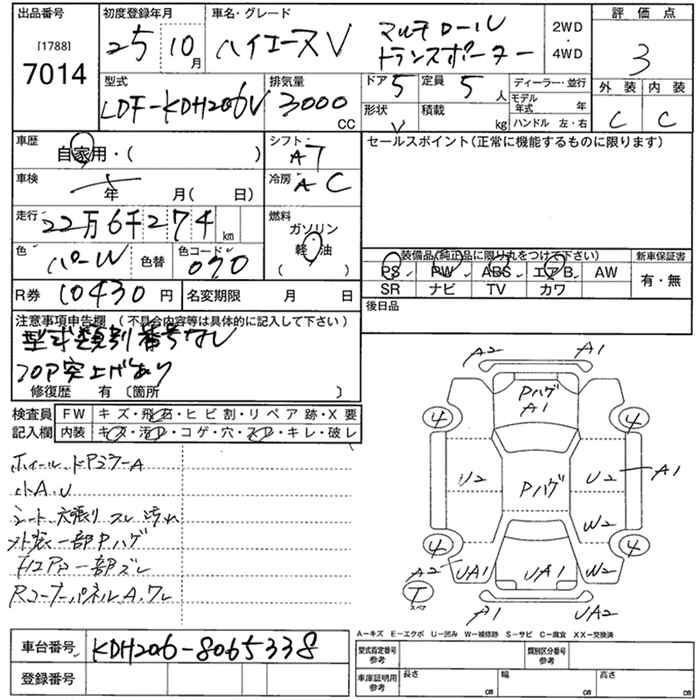 出品番号 初度登録年月 車名・グレード 評価点
[1788]
7014 25 10月 ハイエースV マルチロール トランスポーター 2WD・4WD 3
型式 排気量 ドア 定員 ディーラー・並行 外装 内装
LDF-KDH206V 3000 CC 5 5人 モデル年式 年 C C
形状 V 積載 kg ハンドル 左・右
車歴 自家用・( ) シフト AT セールスポイント(正常に機能するものに限ります)
車検 年 月( 日) 冷房 AC
走行 22万6千274km 燃料 ガソリン 軽油 ( )
色 パールW 色替 色コード 070
装備品(純正品に限り丸をつけて下さい) 新車保証書
PS PW ABS エアB AW 有・無
SR ナビ TV カワ
R券 10430円 名変期限 月 日 後日品
注意事項申告欄(不具合内容等は具体的に記入して下さい)
型式類別番号なし
フロア突上げあり
修復歴 有 〔箇所 〕
検査員 FW キズ・飛石・ヒビ割・リペア跡・X要
記入欄 内装 キズ・汚れ・コゲ・穴・スレ・キレ・破レ
ホイール・ドアミラーA
小A.U
シート穴張り スレ 汚れ
外装一部Pハゲ
Fエアロ一部ズレ
RコーナーパネルA.ワレ
A2 A1
Pハゲ
A1
4 4
U2 Pハゲ U2 A1
W2
4 4
A2 UA1 UA1 W2
T スペア
A1 UA2
A-キズ E-エクボ U-凹み W-補修跡 S-サビ C-腐食 XX-交換済
車台番号 KDH206-8065338 型式指定番号 参考 類別区分番号 参考
登録番号 車庫証明用 参考 長さ cm 幅 cm 高さ cm